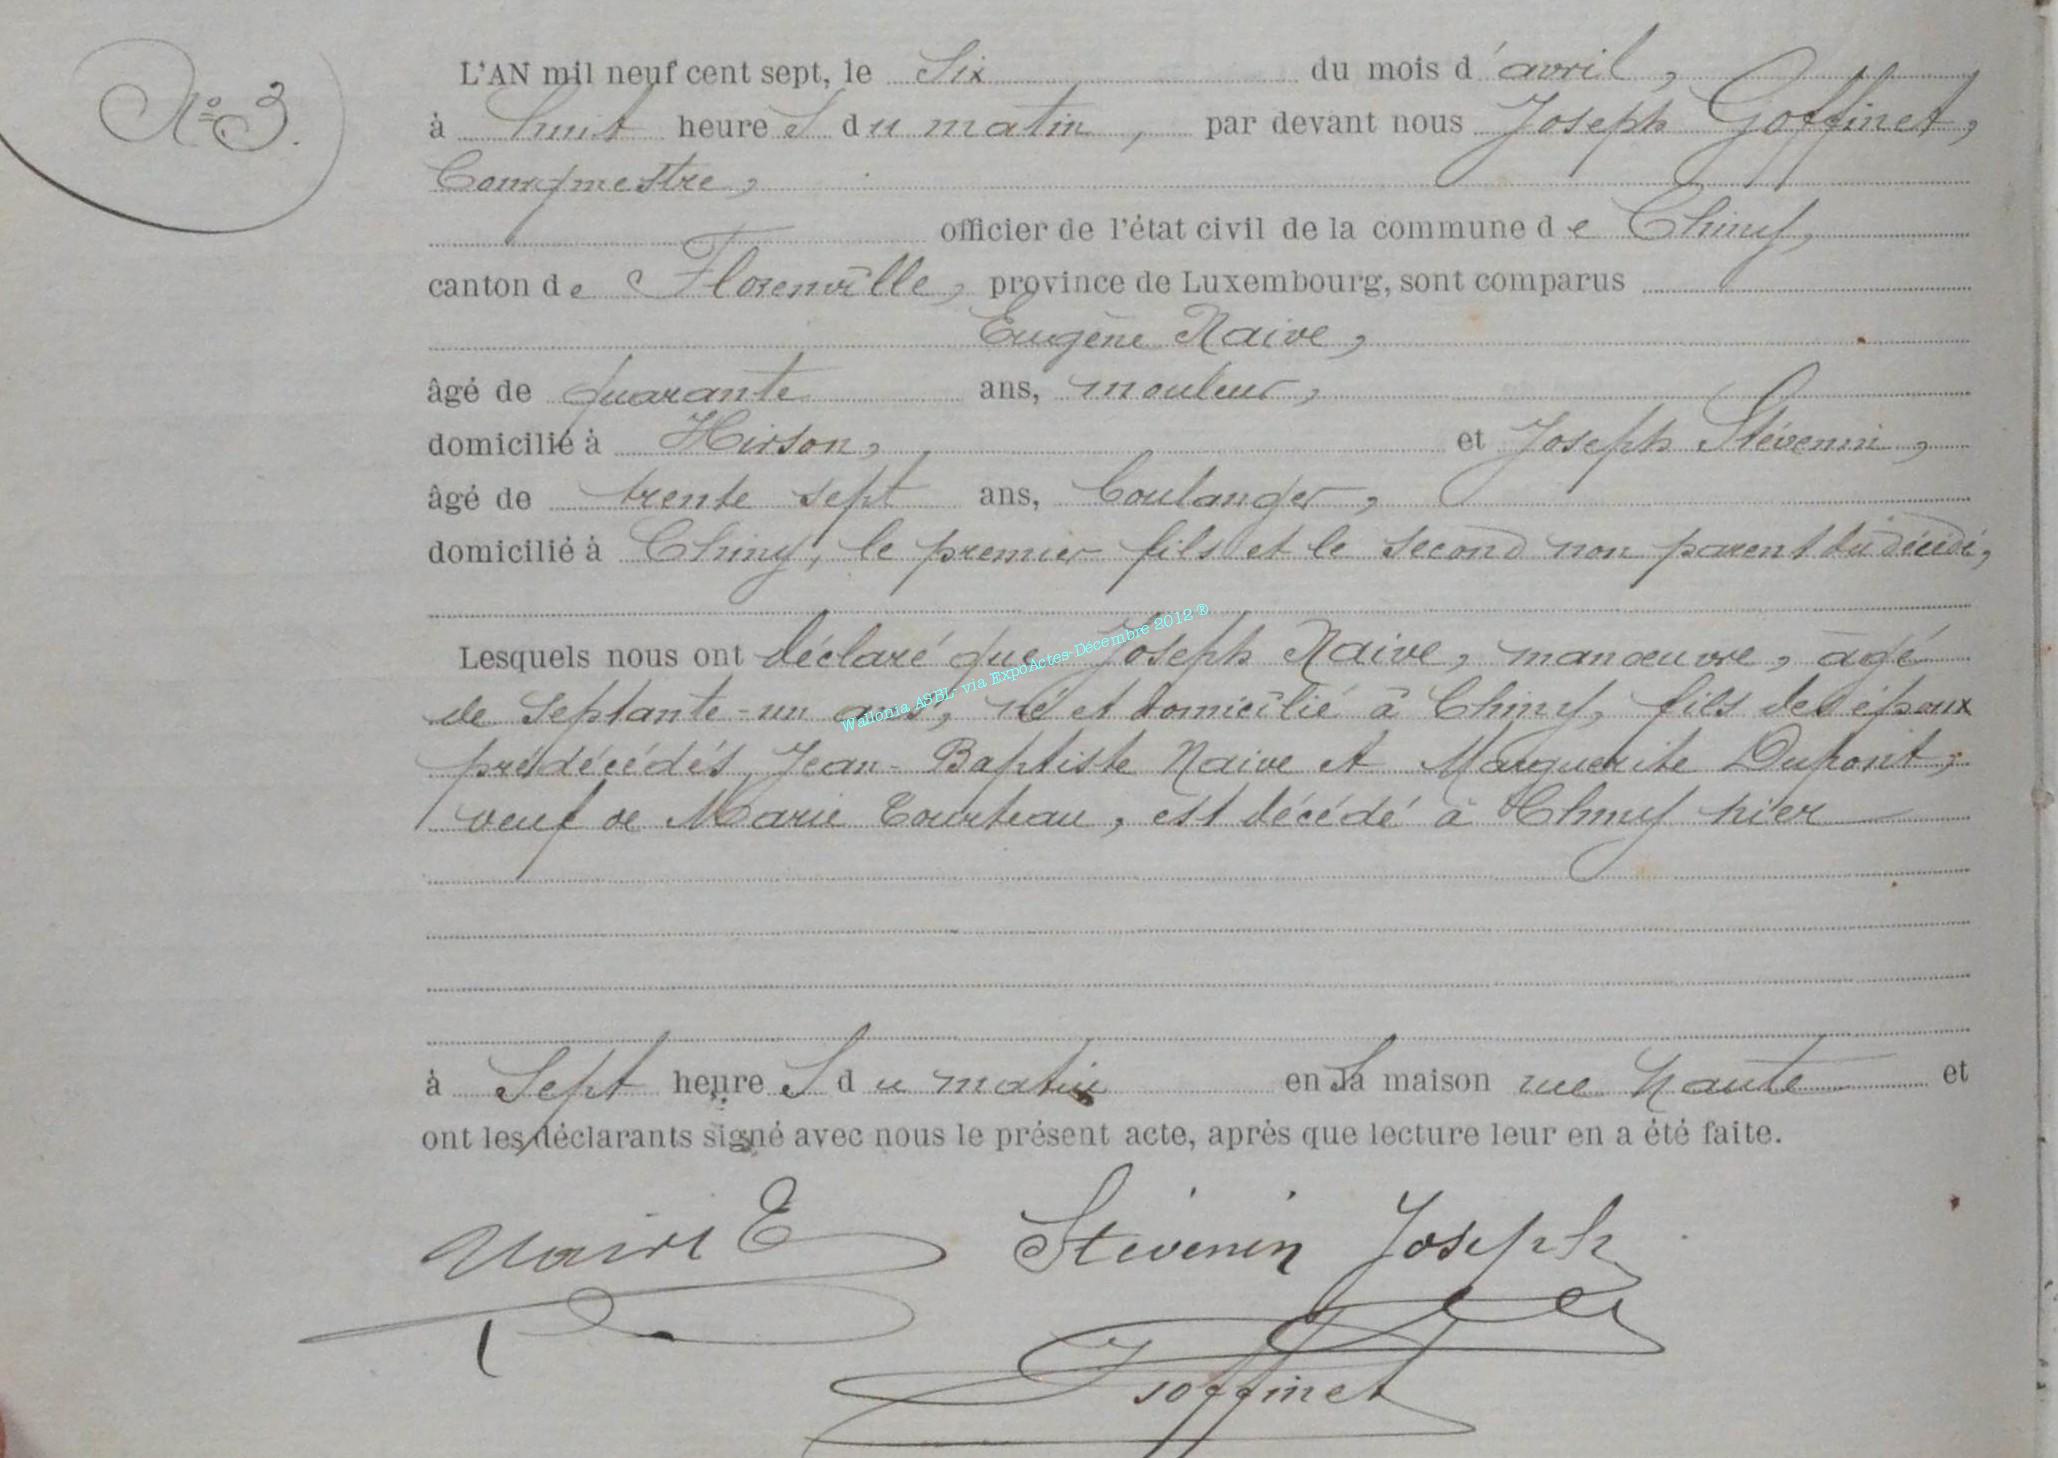 N° 3.
L'AN mil neuf cent sept, le Six du mois d'avril,
à huit heures du matin, par devant nous Joseph Goffinet,
Bourgmestre,
officier de l'état civil de la commune de Chiny,
canton de Florenville, province de Luxembourg, sont comparus
Eugène Naive,
âgé de quarante ans, mouleur,
domicilié à Hirson, et Joseph Stévenin,
âgé de trente sept ans, boulanger,
domicilié à Chiny, le premier fils et le second non parent du décédé,
Lesquels nous ont déclaré que Joseph Naive, manœuvre, âgé
de septante-un ans, né et domicilié à Chiny, fils des époux
prédécédés Jean-Baptiste Naive et Marguerite Dupont,
veuf de Marie Tourteau, est décédé à Chiny hier
à Sept heures du matin en sa maison rue haute et
ont les déclarants signé avec nous le présent acte, après que lecture leur en a été faite.
Naive E Stévenin Joseph
J Goffinet
Wallonia ASBL via ExpoActes-Décembre 2012 ®